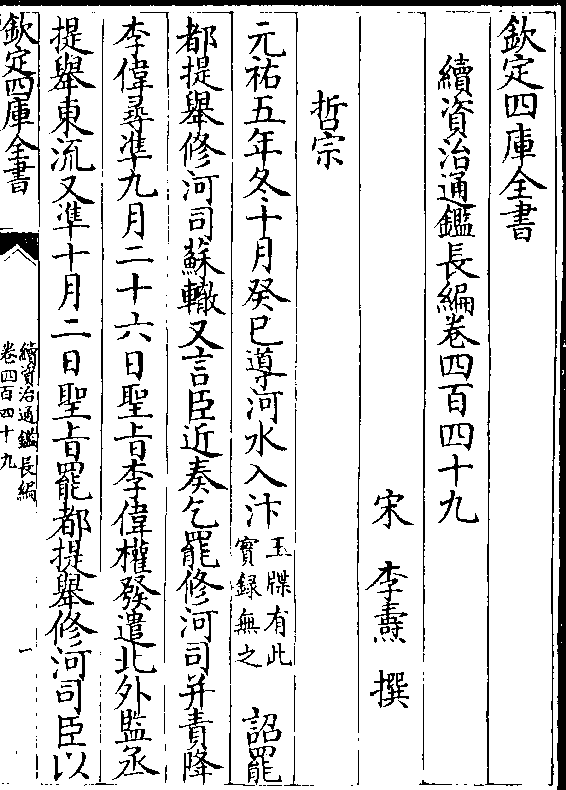 欽定四庫全書
續資治通鑑長編卷四百四十九
宋　李燾　撰
哲宗
元祐五年冬十月癸巳導河水入汴玉牒有此
實録無之　詔罷
都提舉修河司蘇轍又言臣近奏乞罷修河司并責降
李偉尋準九月二十六日聖旨李偉權發遣北外監丞
提舉東流又準十月二日聖旨罷都提舉修河司臣以
欽定四庫全書
續資治通鑑長編
卷四百四十九
一